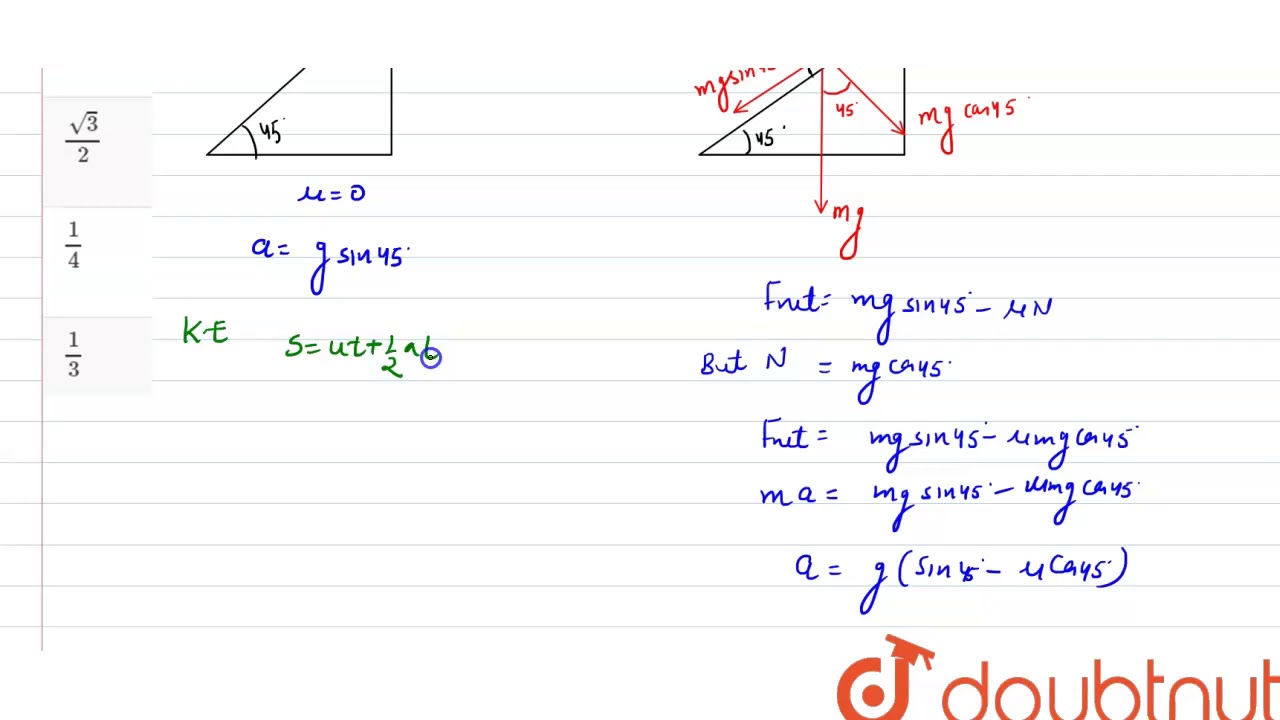 √3/2
1/4
1/3
45°
μ = 0
a = g sin 45°
K·E S = ut + 1/2 at
mg sin 45
45°
45°
mg cos 45°
mg
Fnet = mg sin 45° - μN
But N = mg cos 45°
Fnet = mg sin 45° - μ mg cos 45°
ma = mg sin 45° - μmg cos 45°
a = g (sin 45° - μ cos 45°)
doubtnut